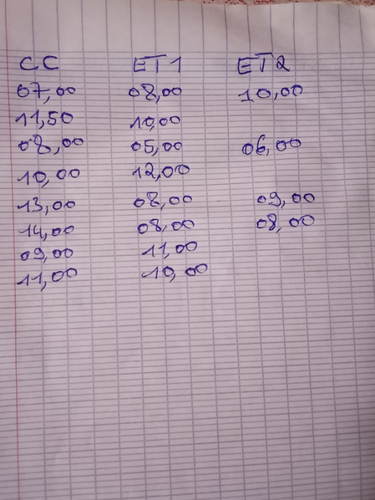 CC ET1 ET2
07,00 08,00 10,00
11,50 10,00
08,00 05,00 06,00
10,00 12,00
13,00 08,00 09,00
14,00 08,00 08,00
09,00 11,00
11,00 10,00